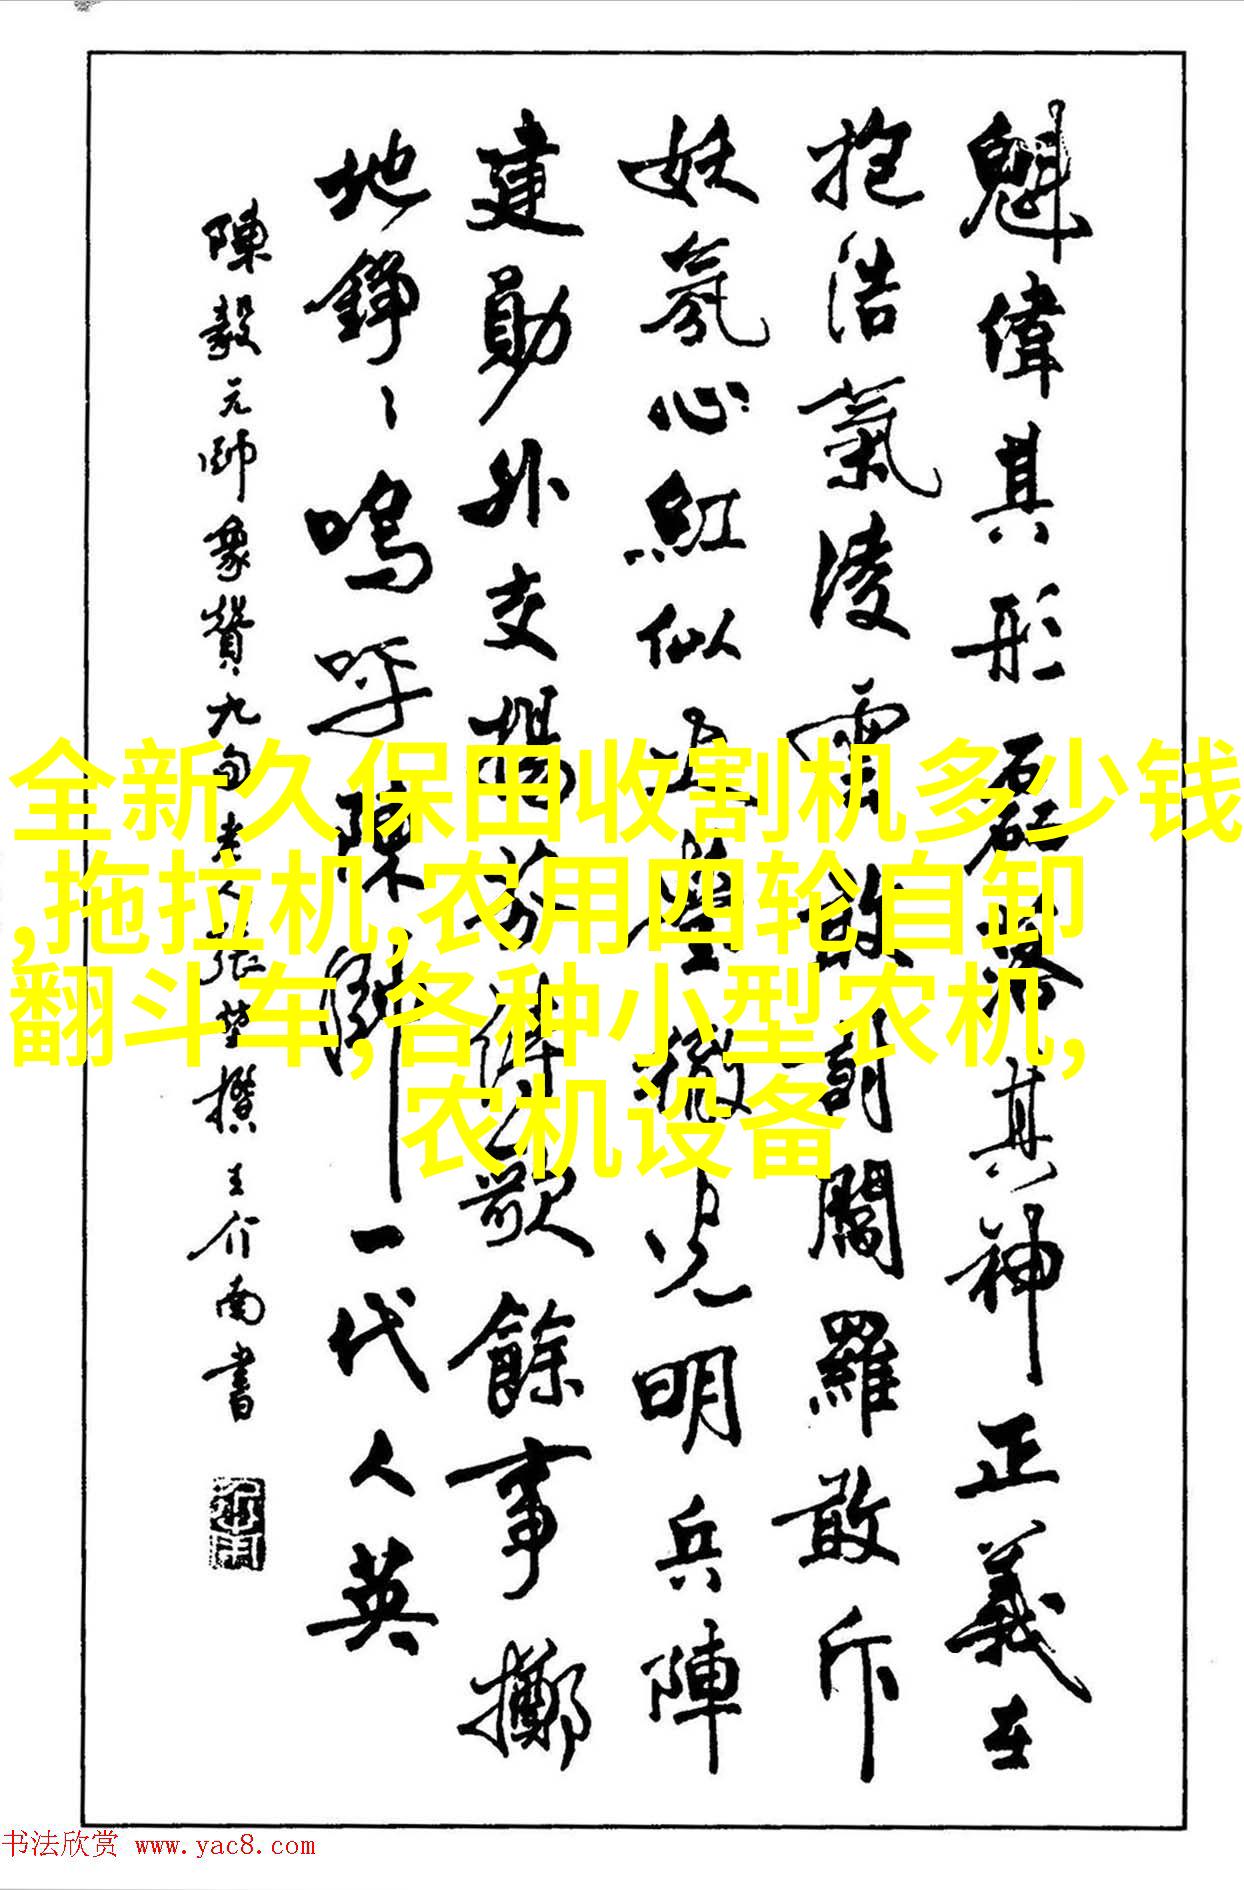 魁偉其形磊落其神正義在
抱浩氣凌雲敢割閻羅敢斥
妖氛心紅似火瑩澈光明兵陣
建勛外交揚芬偉歌餘事擲
地錚々嗚呼陳帥一代人英
陳毅元帥象贊九旬老人張楚撰王介南书
全新久保田收割机多少钱
,拖拉机,农用四轮自卸
翻斗车,各种小型农机,
农机设备
书法欣赏 www.yac8.com